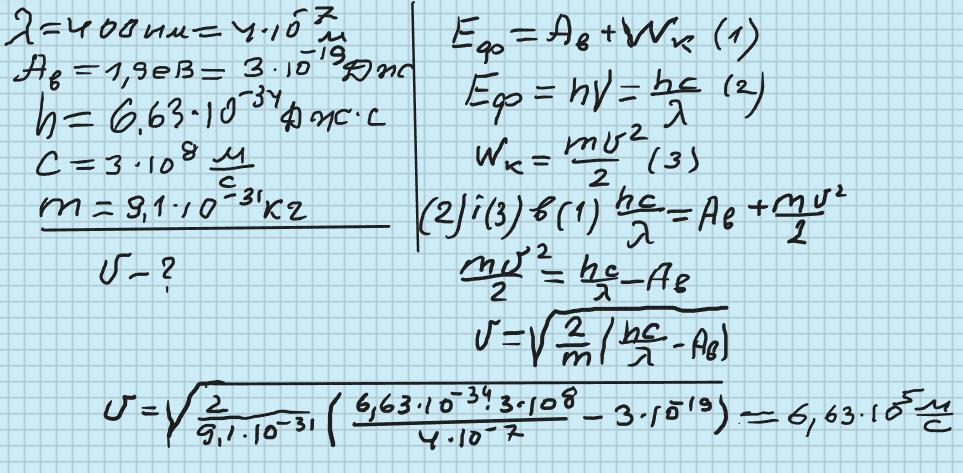 λ = 400 нм = 4·10⁻⁷ м
Aв = 1,9 еВ = 3·10⁻¹⁹ Дж
h = 6,63·10⁻³⁴ Дж·с
c = 3·10⁸ м/с
m = 9,1·10⁻³¹ кг
υ - ?
Eф = Aв + Wк (1)
Eф = hν = hc/λ (2)
Wк = mυ²/2 (3)
(2) і (3) в (1) hc/λ = Aв + mυ²/2
mυ²/2 = hc/λ - Aв
υ = √(2/m (hc/λ - Aв))
υ = √(2/(9,1·10⁻³¹) ((6,63·10⁻³⁴·3·10⁸)/(4·10⁻⁷) - 3·10⁻¹⁹)) = 6,63·10⁵ м/с